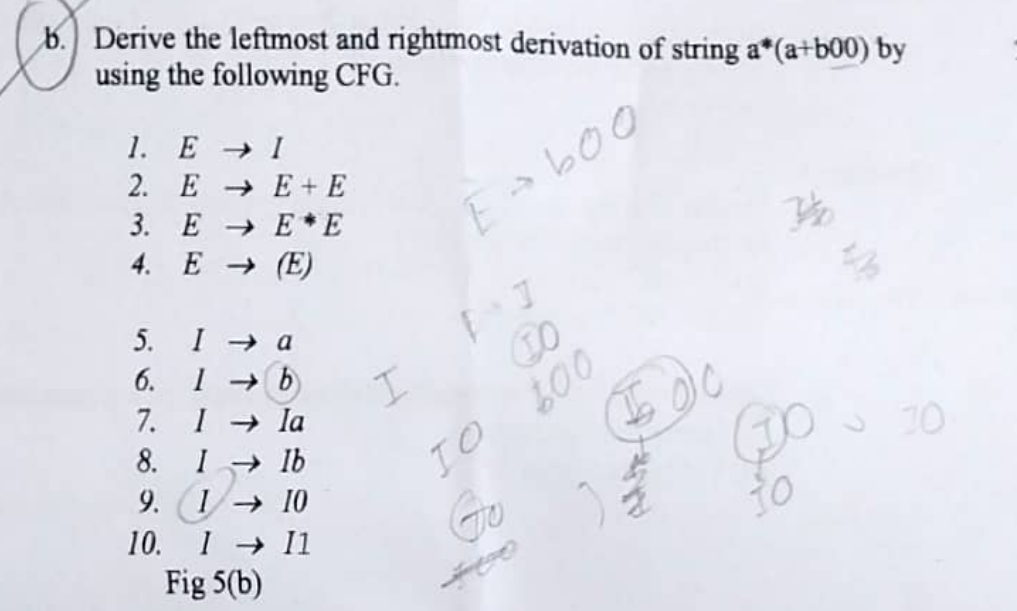 b. Derive the leftmost and rightmost derivation of string a*(a+b00) by
using the following CFG.
E → b00
1. E → I
2. E → E + E
3. E → E * E
4. E → (E)
5. I → a
6. I → b
7. I → Ia
8. I → Ib
9. I → I0
10. I → I1
Fig 5(b)
I
I0
b00
I0
I0